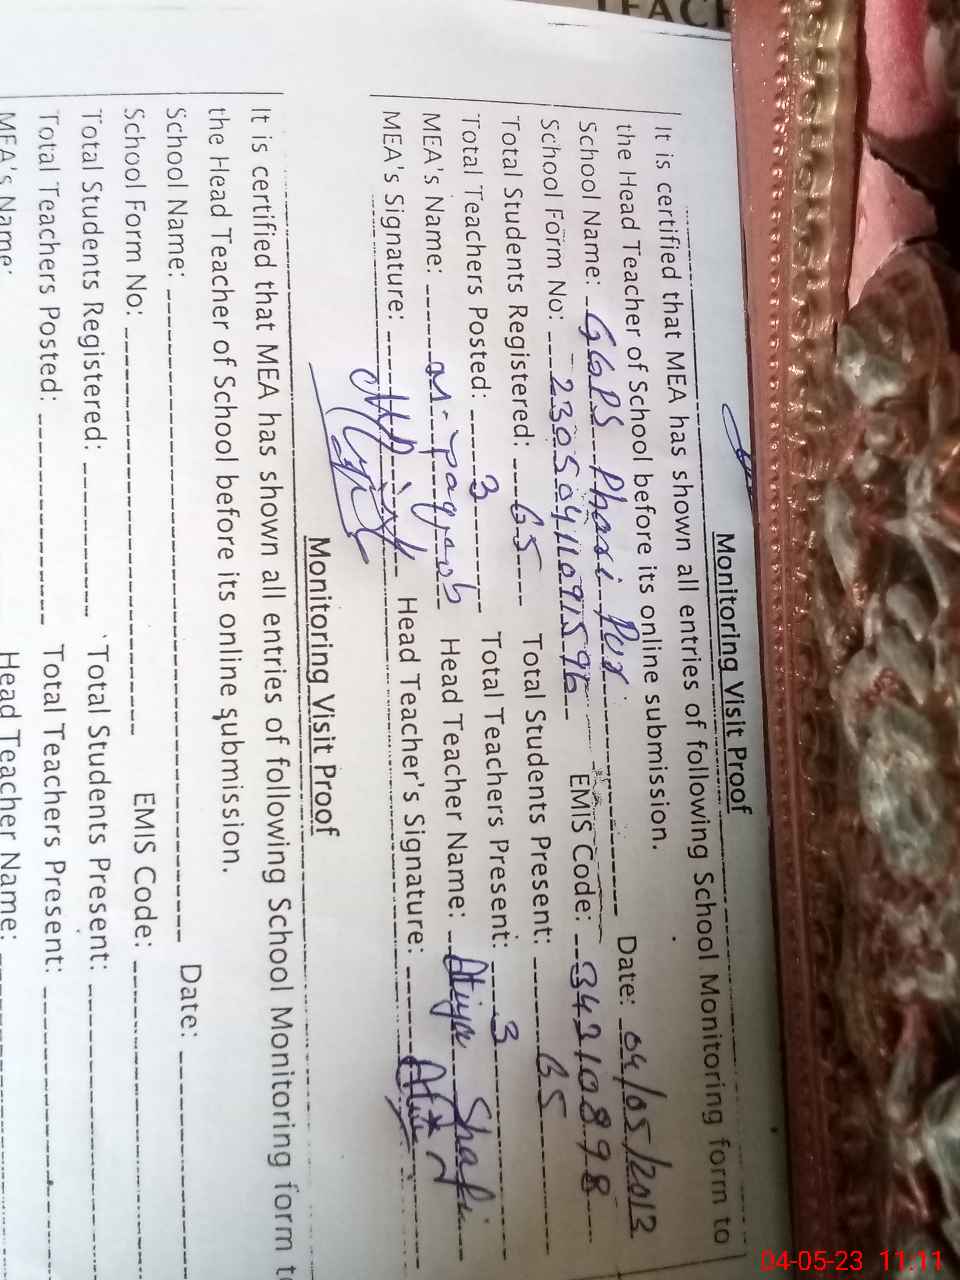 TEACH
Monitoring Visit Proof
It is certified that MEA has shown all entries of following School Monitoring form to
the Head Teacher of School before its online submission.
School Name: GGPS Phasi Pur Date: 04/05/2013
School Form No: 230504110915 EMIS Code: 34210898
Total Students Registered: 65 Total Students Present: 65
Total Teachers Posted: 3 Total Teachers Present: 3
MEA's Name: M. Head Teacher Name: Atiya Shafi
MEA's Signature: Head Teacher's Signature:
Monitoring Visit Proof
It is certified that MEA has shown all entries of following School Monitoring form t
the Head Teacher of School before its online submission.
School Name: Date:
School Form No: EMIS Code:
Total Students Registered: Total Students Present:
Total Teachers Posted: Total Teachers Present:
MEA's Name: Head Teacher Name:
04-05-23 11:11